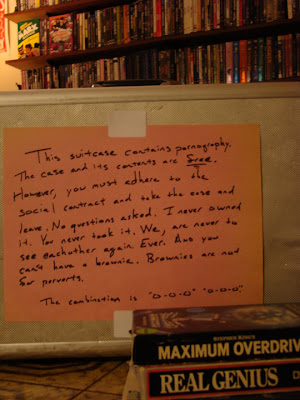 This suitcase contains pornography.
The case and its contents are free.
However, you must adhere to the
social contract and take the case and
leave. No questions asked. I never owned
it. You never took it. We, are never to
see eachother again. Ever. And you
can't have a brownie. Brownies are not
for perverts.
The combination is "0-0-0" "0-0-0".
STEPHEN KING'S
MAXIMUM OVERDRIV
REAL GENIUS